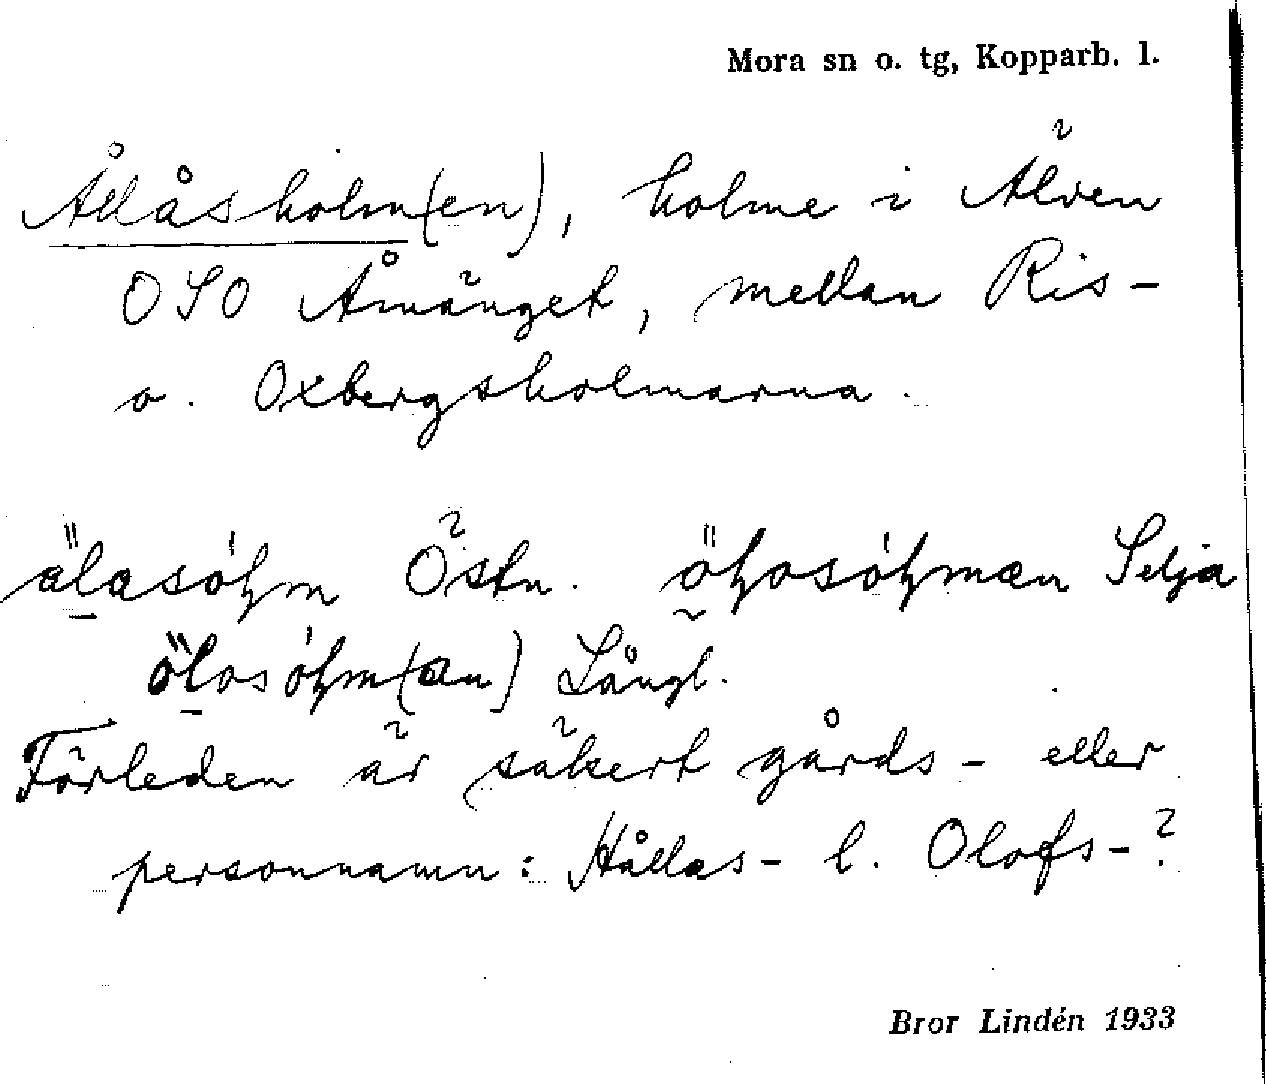 Mora sn o. tg, Kopparb. l.
Ållåsholm(en), holme i Älven
OSO Åmänget, mellan Ris-
o. Oxbergsholmarna.
älasóhm Östn. öhosóhmæn Selja
ölosóhm(an) Långl.
Förleden är säkert gårds- eller
personnamn: Hållas- l. Olofs-?
Bror Lindén 1933